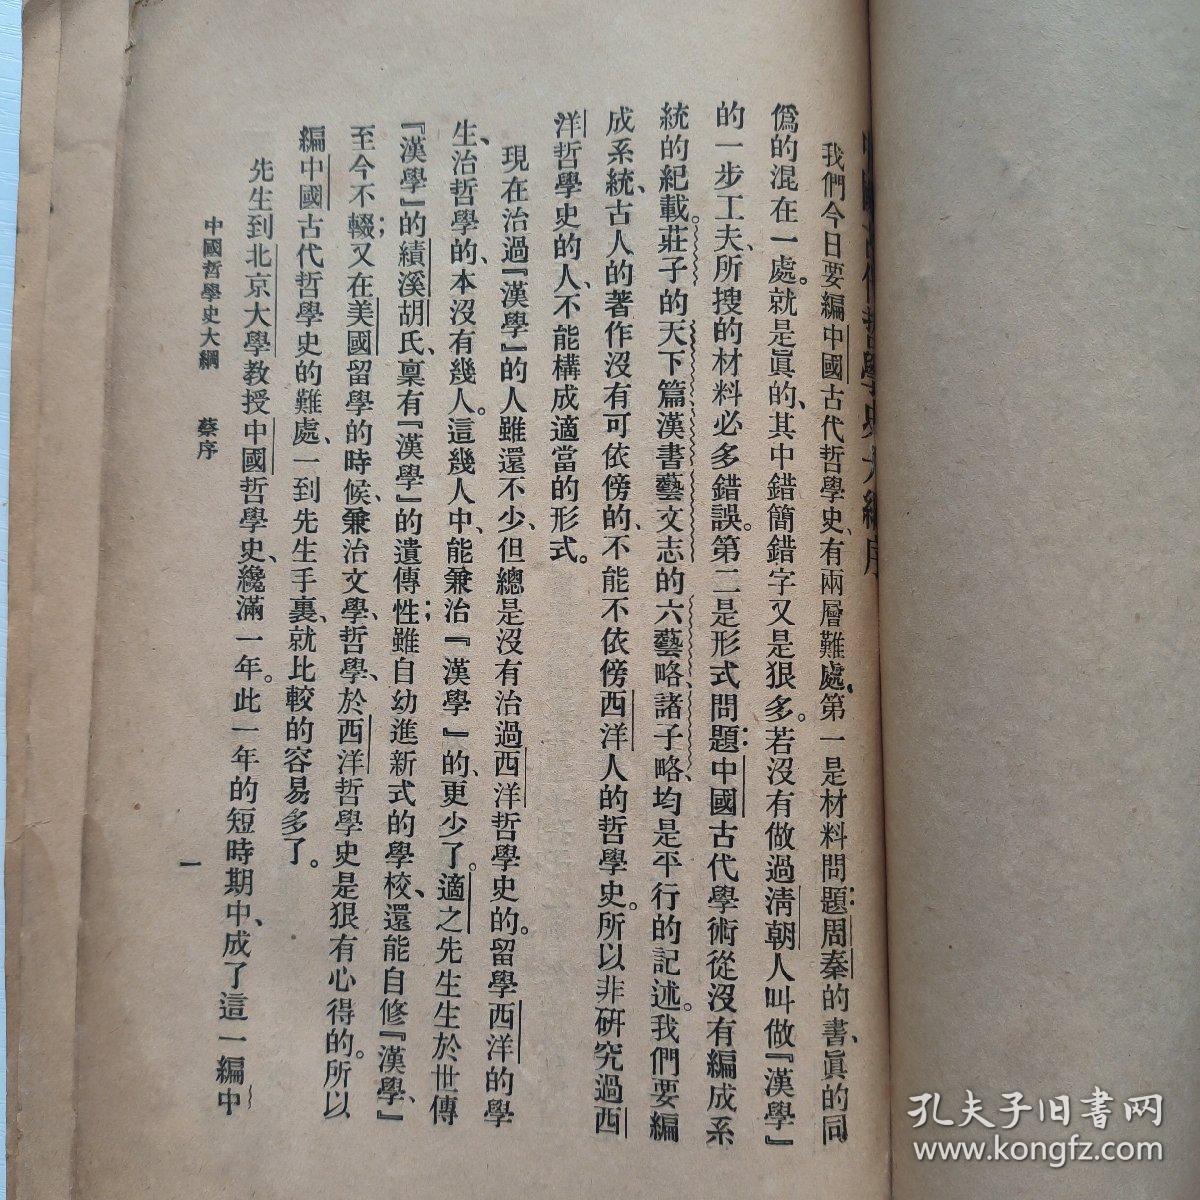 中國古代哲學史大綱序
我們今日要編中國古代哲學史、有兩層難處。第一是材料問題：周秦的書、眞的同
僞的混在一處。就是眞的、其中錯簡錯字又是狠多。若沒有做過淸朝人叫做『漢學』
的一步工夫、所搜的材料必多錯誤。第二是形式問題：中國古代學術從沒有編成系
統的紀載。莊子的天下篇漢書藝文志的六藝略、諸子略、均是平行的記述。我們要編
成系統、古人的著作沒有可依傍的、不能不依傍西洋人的哲學史。所以非硏究過西
洋哲學史的人、不能構成適當的形式。
現在治過『漢學』的人雖還不少、但總是沒有治過西洋哲學史的。留學西洋的學
生、治哲學的、本沒有幾人。這幾人中、能兼治『漢學』的、更少了。適之先生生於世傳
『漢學』的績溪胡氏、稟有『漢學』的遺傳性；雖自幼進新式的學校、還能自修『漢學、』
至今不輟；又在美國留學的時候、兼治文學、哲學、於西洋哲學史是狠有心得的。所以
編中國古代哲學史的難處、一到先生手裏、就比較的容易多了。
先生到北京大學教授中國哲學史、纔滿一年。此一年的短時期中、成了這一編中
中國哲學史大綱　蔡序
一
孔夫子旧书网
www.kongfz.com